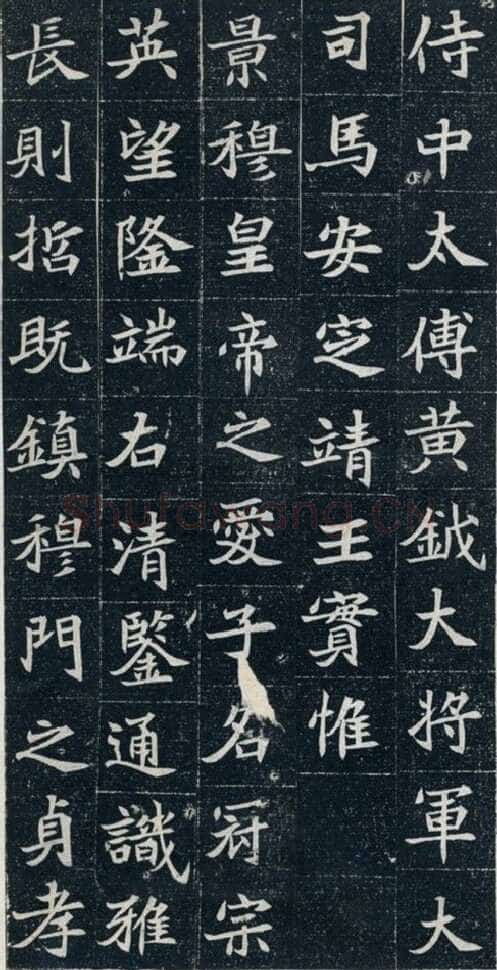 侍中太傅黄鉞大将軍大
司馬安定靖王實惟
景穆皇帝之愛子名冠宗
英望隆端右清鑒通識雅
長則哲既鎮穆門之貞孝
Shufawang.CN